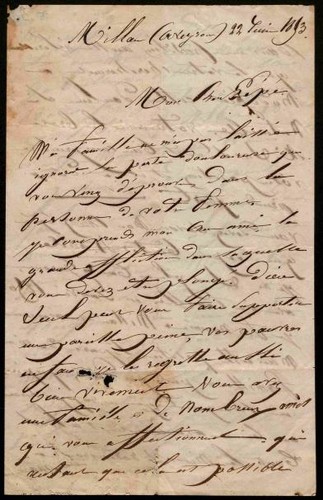 Millau (Aveyron) 22 Juin 1853.
Mon Cher Pepe
Ma famille ne m'a pas laissé
ignorer la perte douloureuse que
vous venez d'éprouver dans la
personne de votre femme
je comprends mon cher ami la
grande affliction dans laquelle
vous devez être plongé. Dieu
seul peut vous faire supporter
une pareille peine, vos pauvres
enfants la regrette aussi
bien vivement. Vous avez
une famille et de nombreux amis
qui vous affectionnent, qui
autant que cela est possible